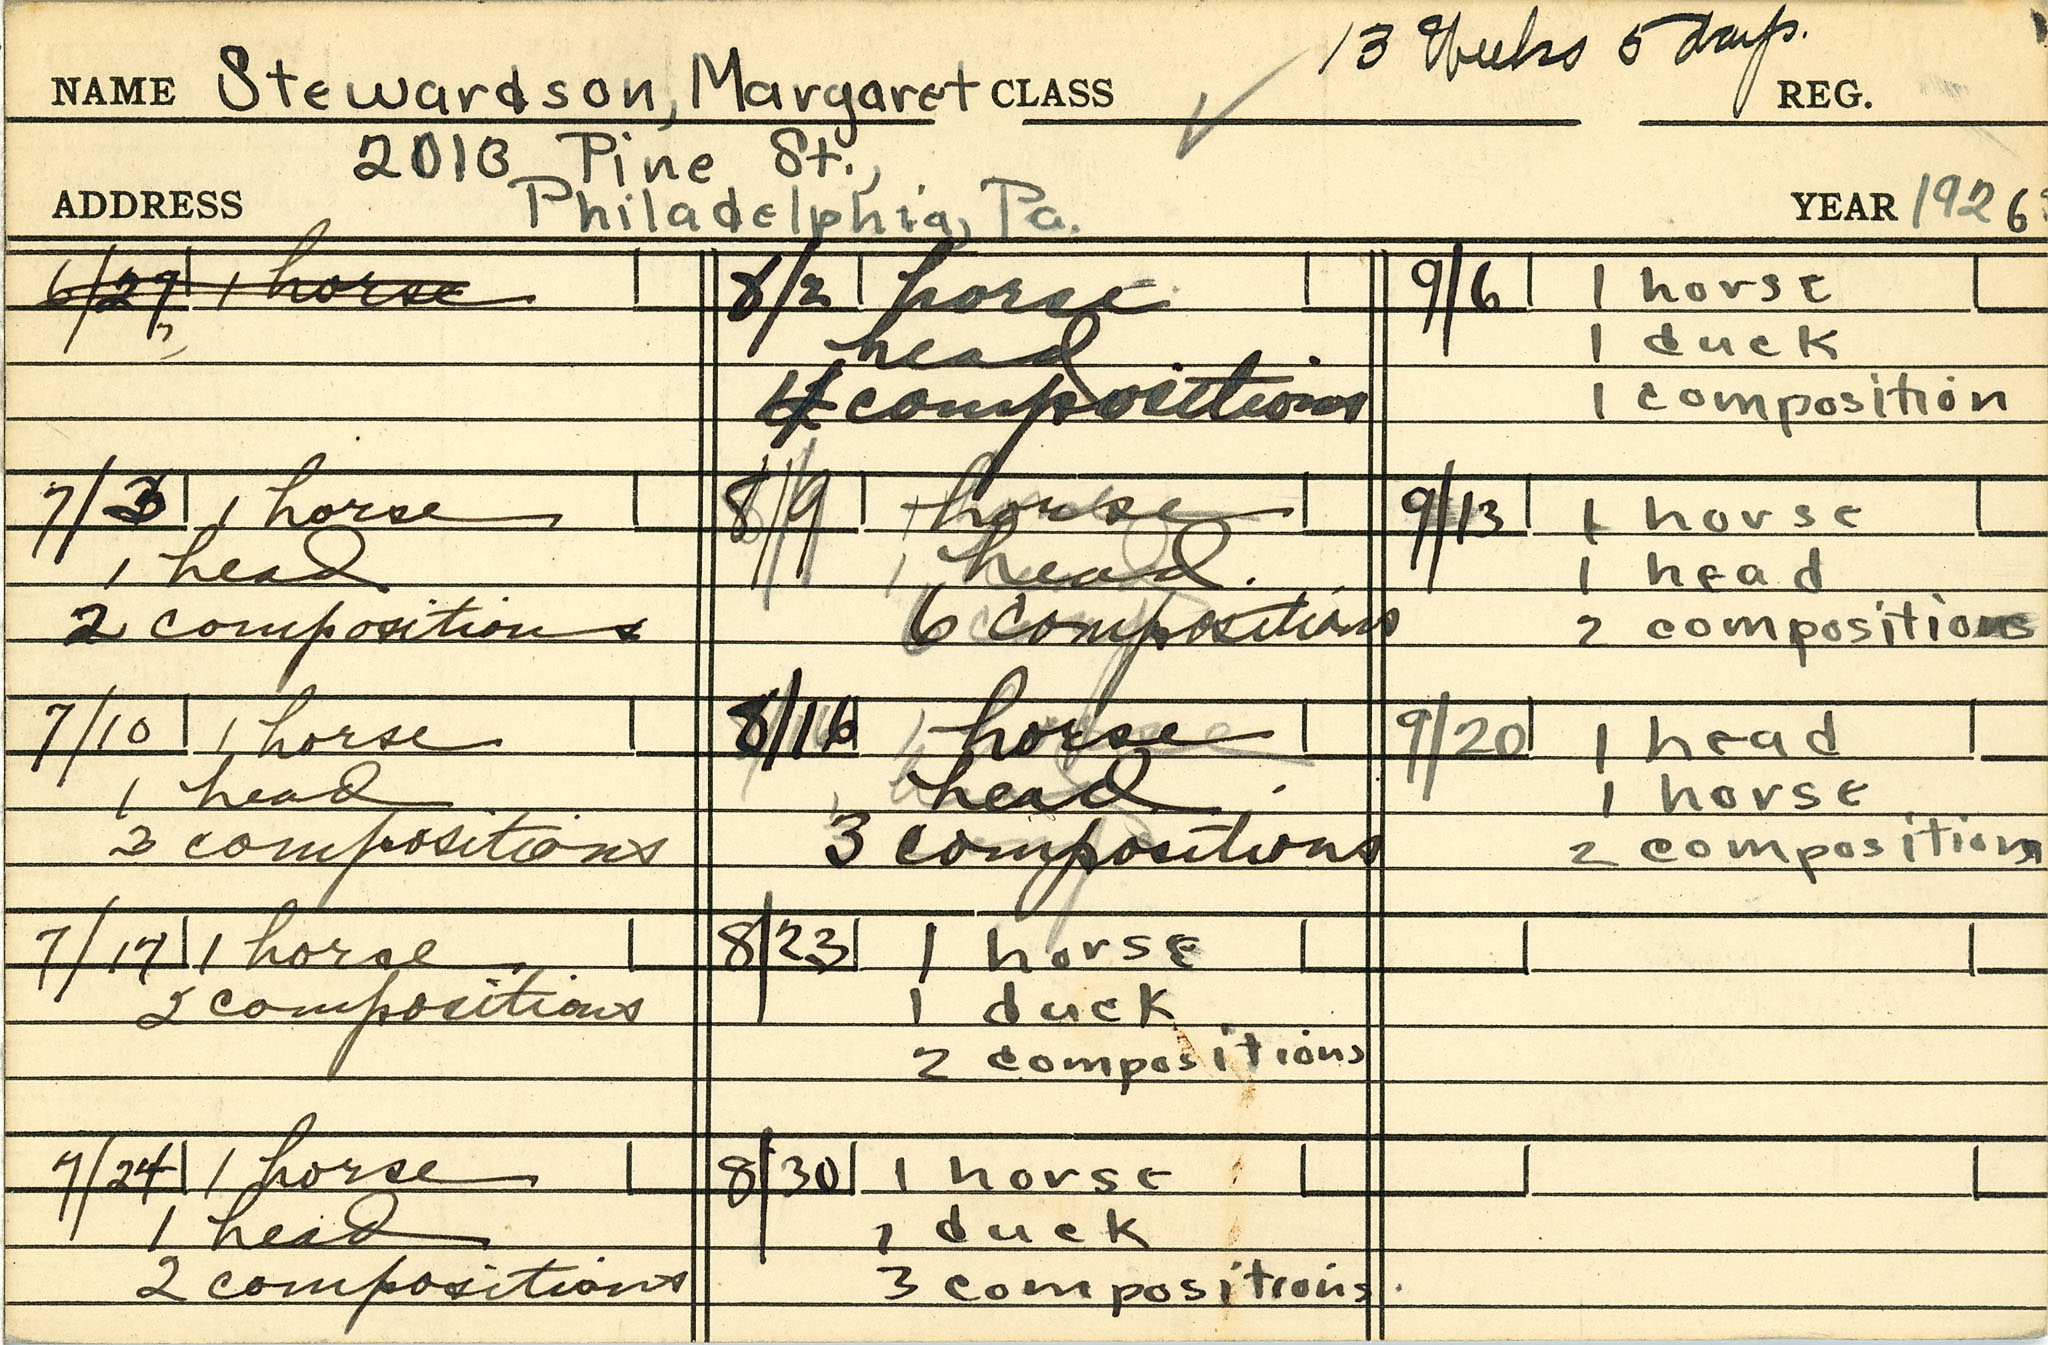 13 Weeks 5 days.
NAME Stewardson, Margaret CLASS REG.
2013 Pine St.,
ADDRESS Philadelphia, Pa. YEAR 1926
6/29 1 horse
7/3 1 horse
1 head
2 compositions
7/10 1 horse
1 head
3 compositions
7/17 1 horse
2 compositions
7/24 1 horse
1 head
2 compositions
8/2 horse
head
4 compositions
8/9 1 horse
1 head.
6 compositions
8/16 1 horse
1 head.
3 compositions
8/23 1 horse
1 duck
2 compositions
8/30 1 horse
1 duck
3 compositions.
9/6 1 horse
1 duck
1 composition
9/13 1 horse
1 head
2 compositions
9/20 1 head
1 horse
2 compositions